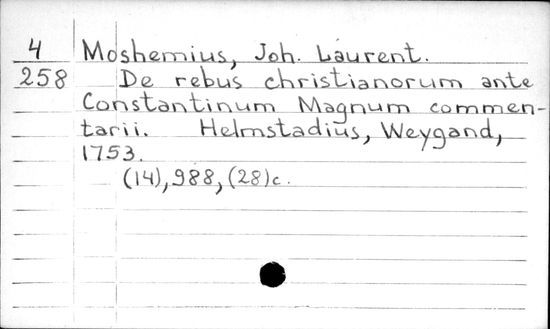 4 Moshemius, Joh. Laurent.
258 De rebus christianorum ante
Constantinum Magnum commen-
tarii. Helmstadius, Weygand,
1753.
(14), 988, (28)c.